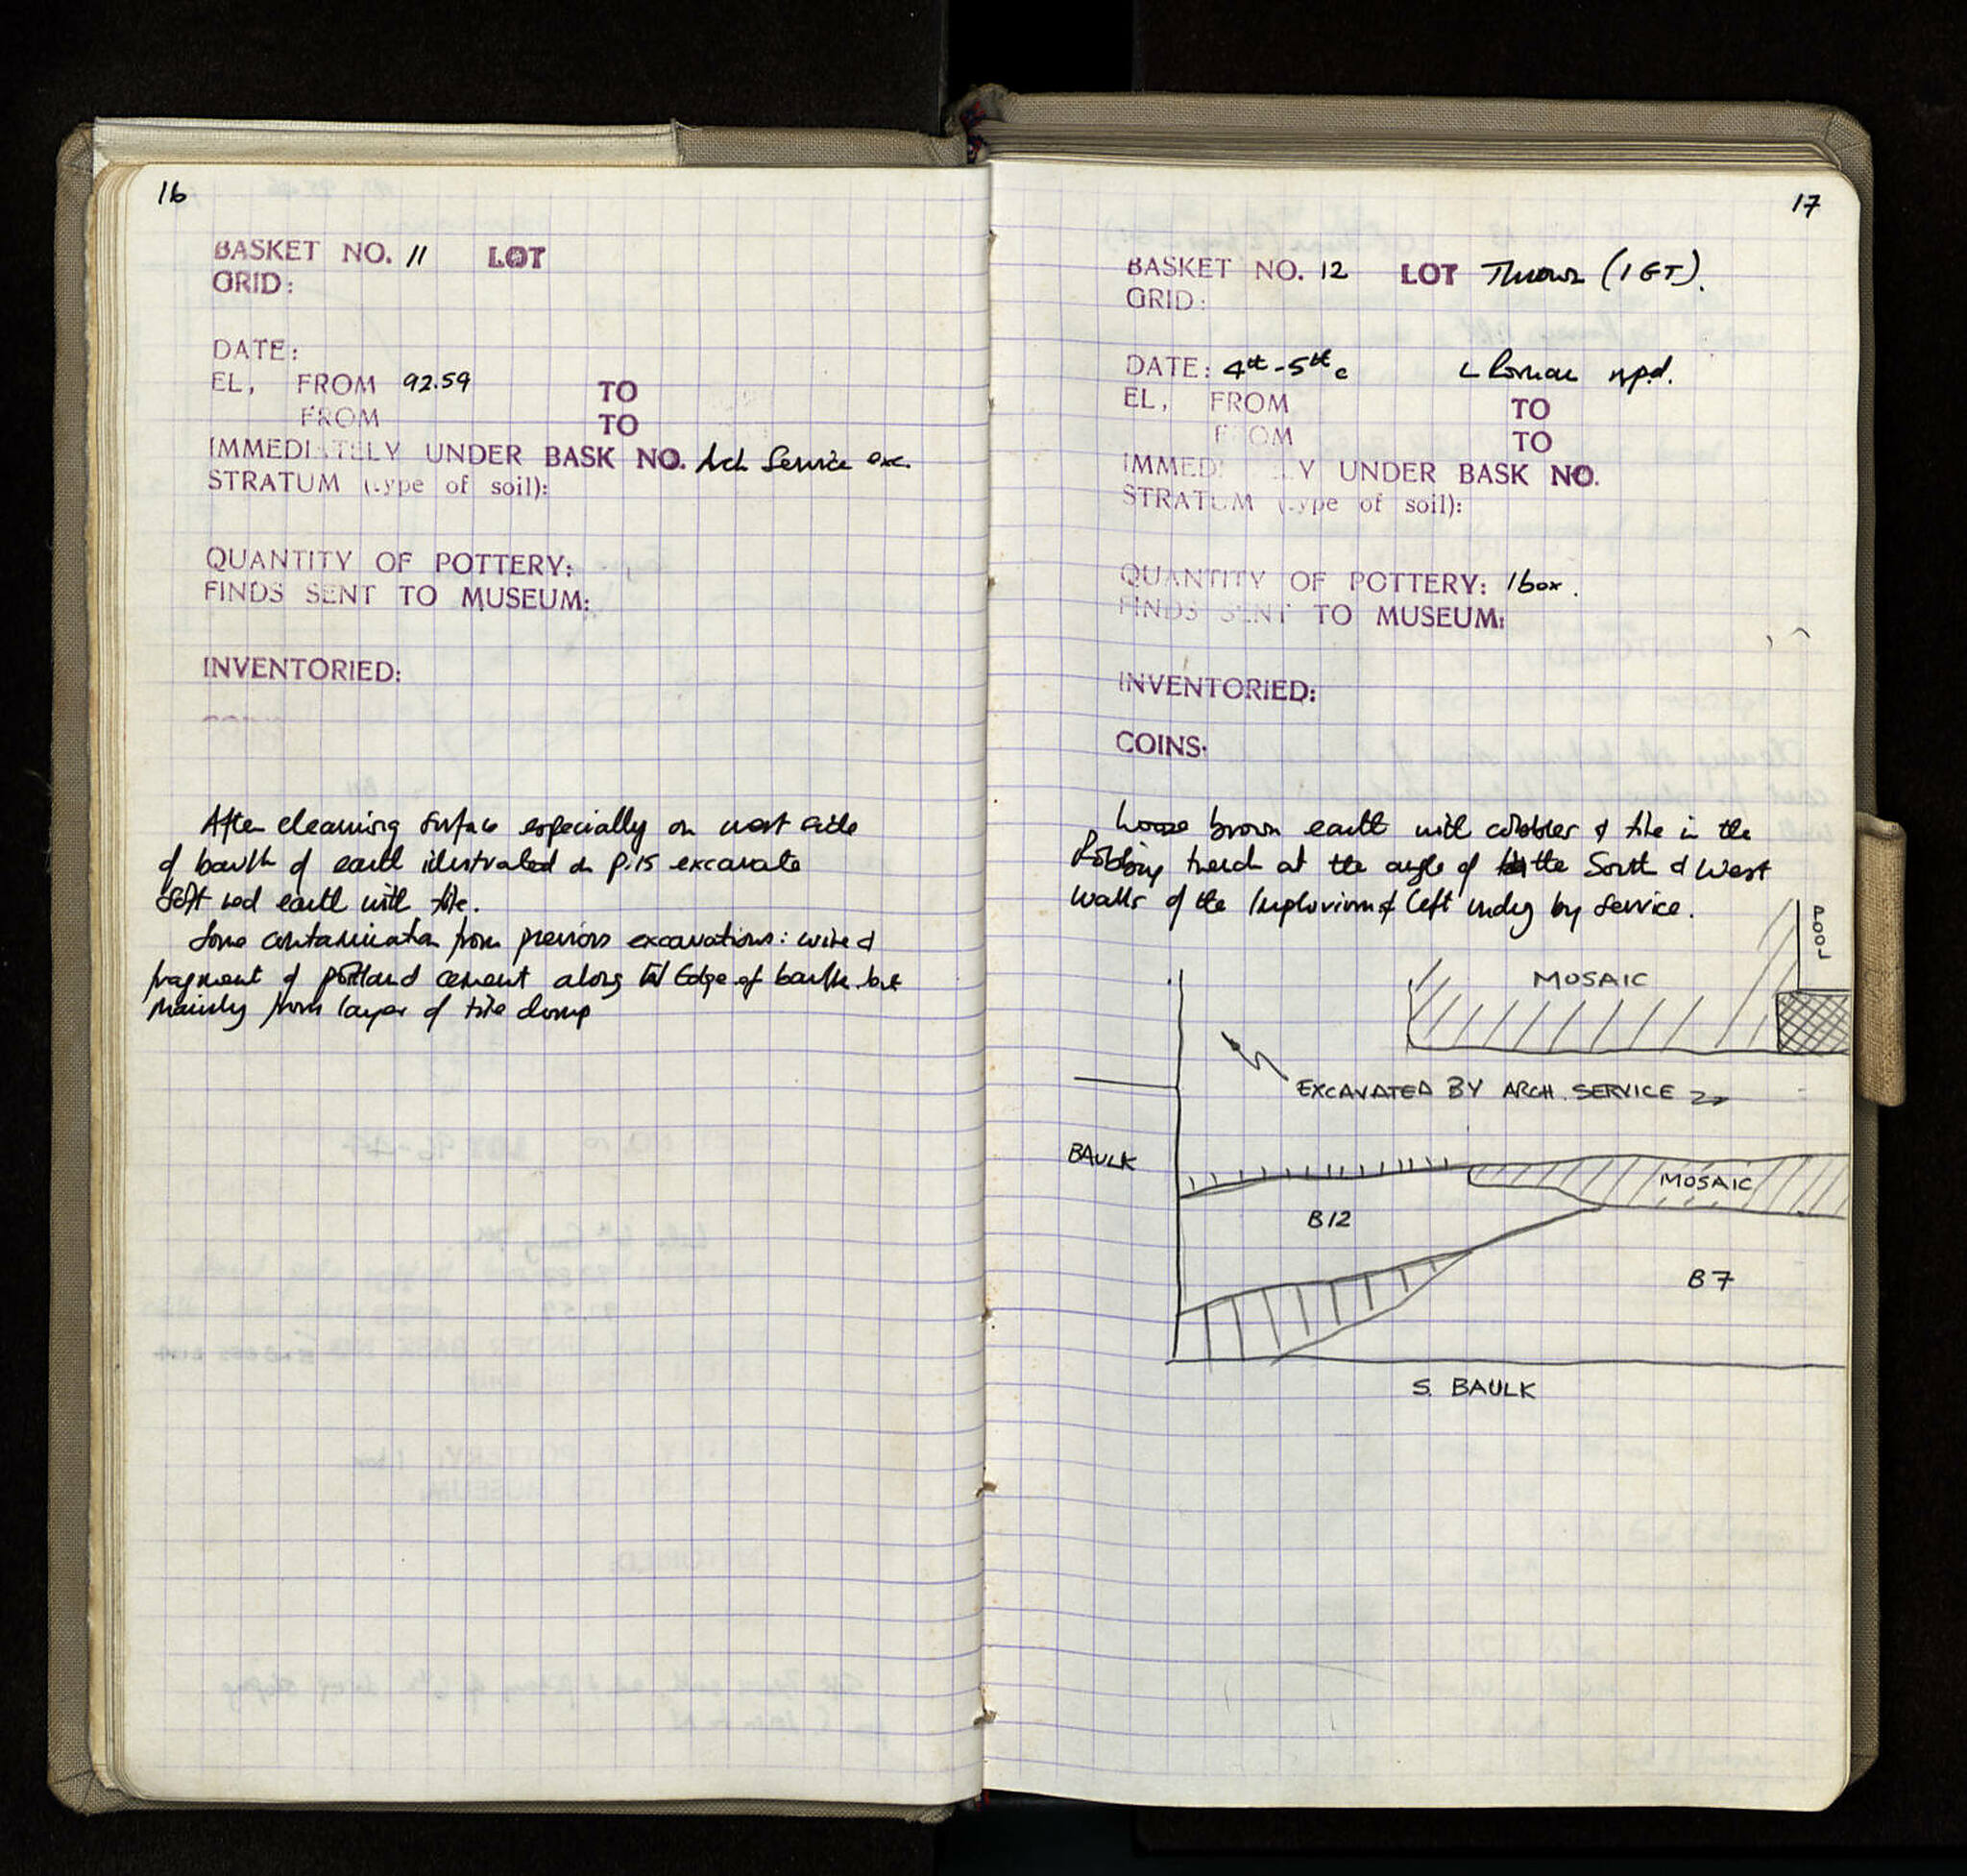 16
BASKET NO. 11 LOT
GRID:
DATE:
EL, FROM 92.59 TO
FROM TO
IMMEDIATELY UNDER BASK NO. Arch Service exc.
STRATUM (type of soil):
QUANTITY OF POTTERY:
FINDS SENT TO MUSEUM:
INVENTORIED:
After cleaning surface especially on west side
of baulk of earth illustrated on p.15 excavate
soft red earth with tile.
Some contamination from previous excavations: wire &
fragment of portland cement along W Edge of baulk. but
mainly from layer of tile dump
17
BASKET NO. 12 LOT Thrown (1 GT).
GRID:
DATE: 4th-5th c L Roman npd.
EL, FROM TO
FROM TO
IMMEDIATELY UNDER BASK NO.
STRATUM (type of soil):
QUANTITY OF POTTERY: 1 box.
FINDS SENT TO MUSEUM:
INVENTORIED:
COINS.
Loose brown earth with cobbles & tile in the
Robbing trench at the angle of the South & West
walls of the Impluvium & left undug by Service.
POOL
MOSAIC
EXCAVATED BY ARCH. SERVICE
BAULK
MOSAIC
B12
B7
S. BAULK